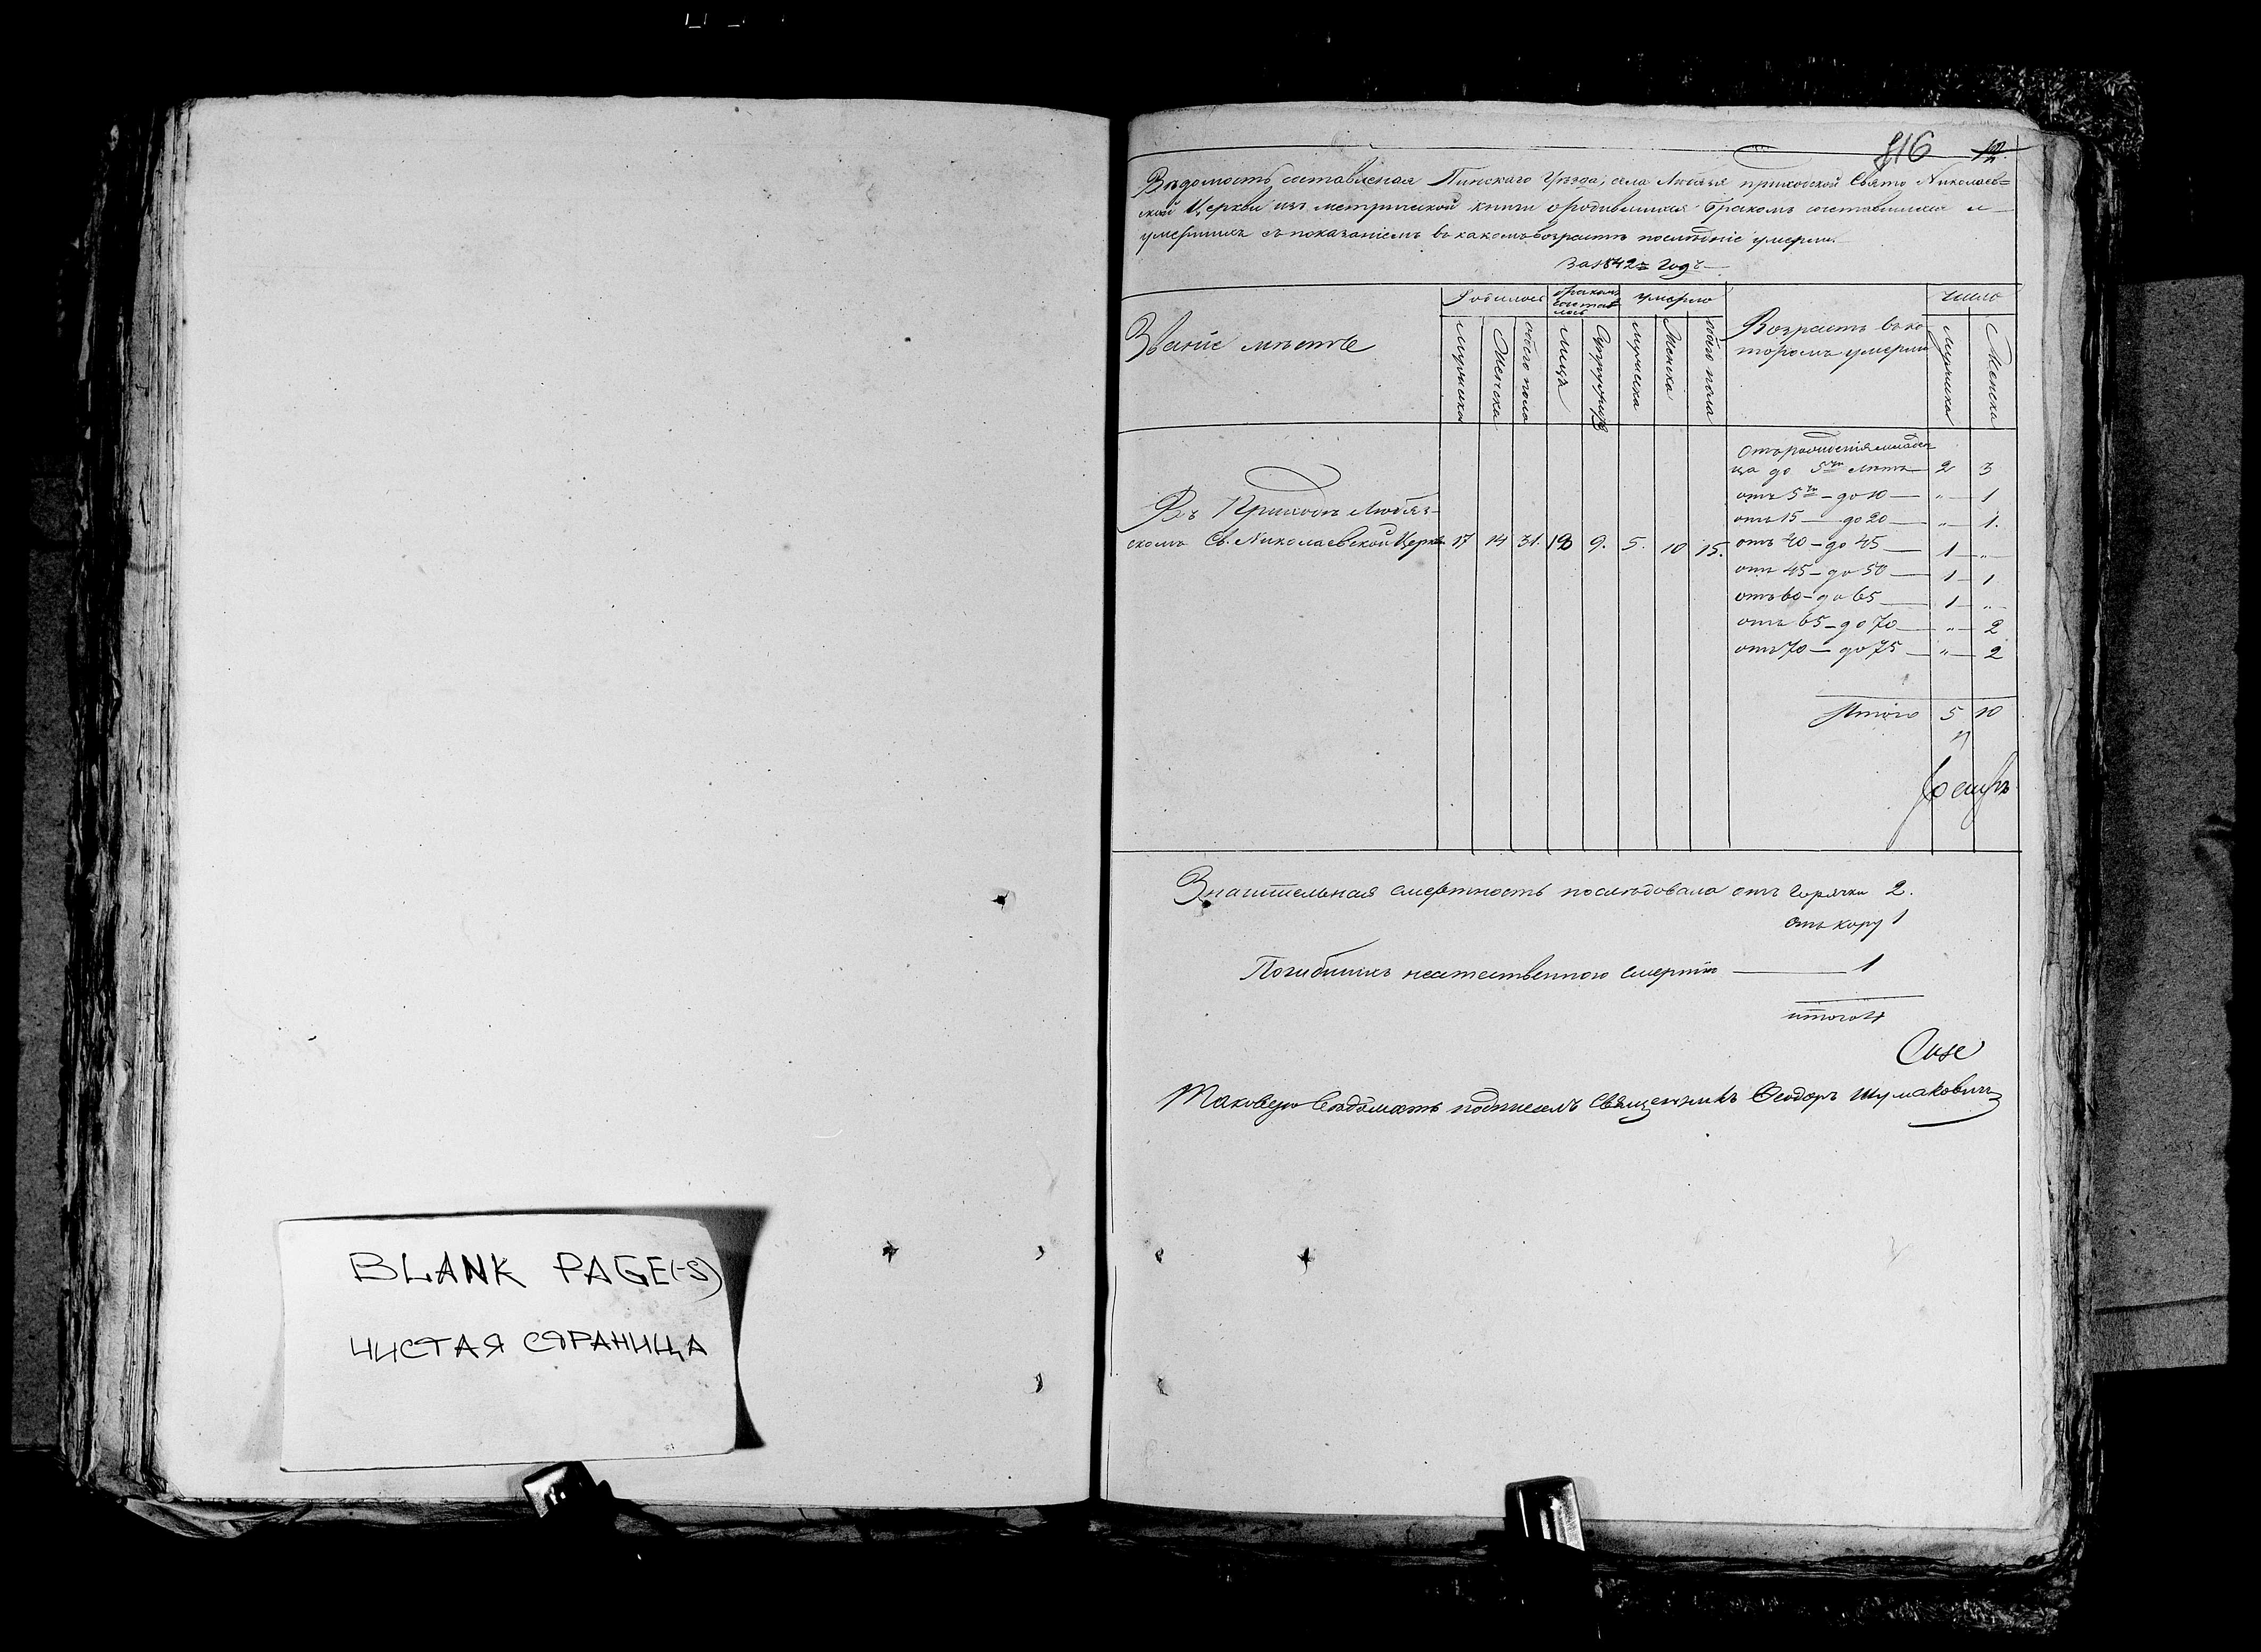 BLANK PAGE(-S)
ЧИСТАЯ СТРАНИЦА
816 12.
Вѣдомость составленая Пинскаго Уѣзда, села Любязя приходской Свято Николаев=
ской Церкви изъ метрической книги о родившихся бракомъ сочетавшихся и
умершихъ съ показаніемъ въ какомъ возрастѣ послѣдніе умерли
За 1842й Годъ
Званіе мѣстъ
Родилось
бракомъ
сочетав
лось
умерло
Возрастъ въ ко-
торомъ умерли
число
Мужеска
Женска
обоего пола
Лицъ
Супружествъ
Мужеска
Женска
обоего пола
Мужеска
Женска
Отъ рожденія младен
ца до 5ти лѣтъ 2 3
отъ 5ти - до 10 " 1
отъ 15 до 20 " 1.
Въ Приходѣ Любяз-
скомъ Св. Николаевской Церкви 17 14 31. 18 9. 5. 10 15.
отъ 40 - до 45 1 "
отъ 45 - до 50 1 1
отъ 60 - до 65 1 "
отъ 65 - до 70 " 2
отъ 70 - до 75 " 2
Итого 5 10
Значительная смертность послѣдовала отъ Горячки 2.
отъ кору 1
Погибшихъ неестественною смертію 1
итого 4
Сію
Таковую Вѣдомость подписалъ Священникъ Феодоръ Шумаковичъ